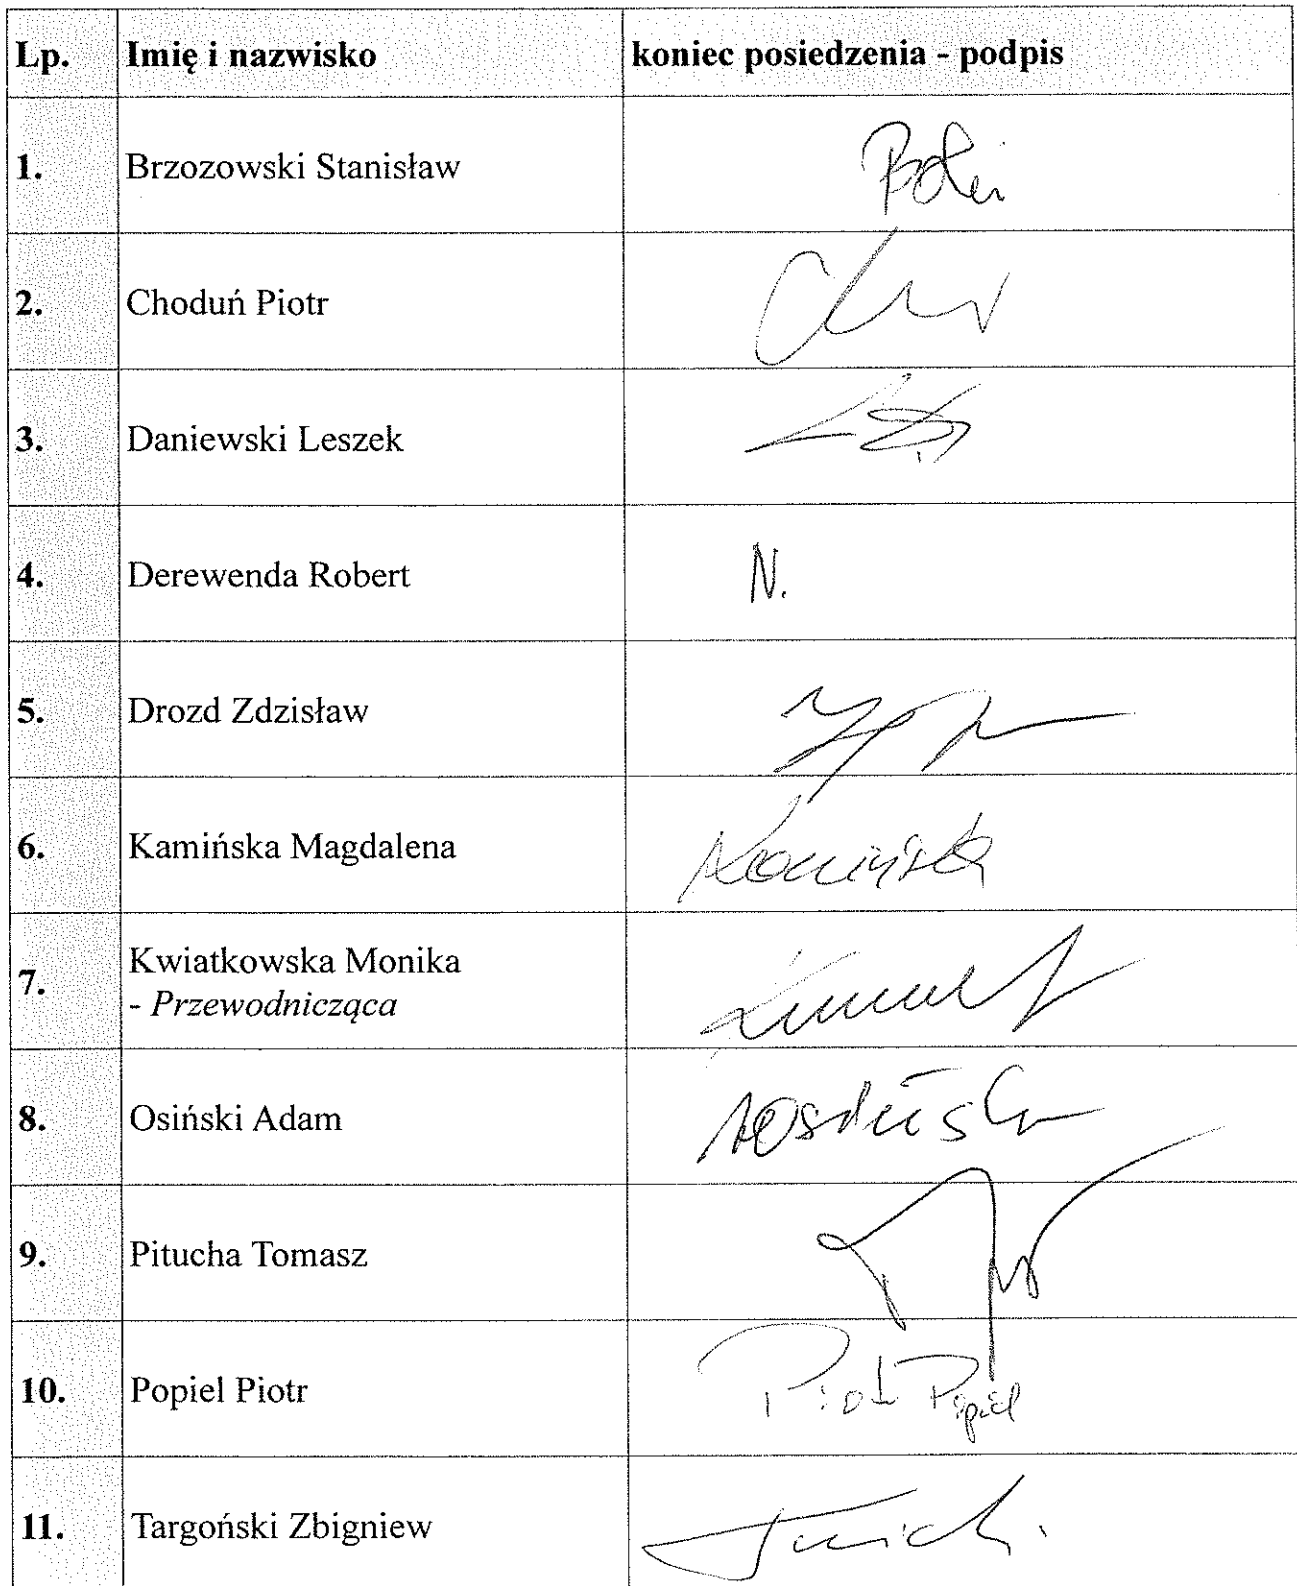 Lp. Imię i nazwisko koniec posiedzenia - podpis
1. Brzozowski Stanisław
2. Choduń Piotr
3. Daniewski Leszek
4. Derewenda Robert N.
5. Drozd Zdzisław
6. Kamińska Magdalena Kamińska
7. Kwiatkowska Monika
- Przewodnicząca
8. Osiński Adam
9. Pitucha Tomasz
10. Popiel Piotr Piotr Popiel
11. Targoński Zbigniew